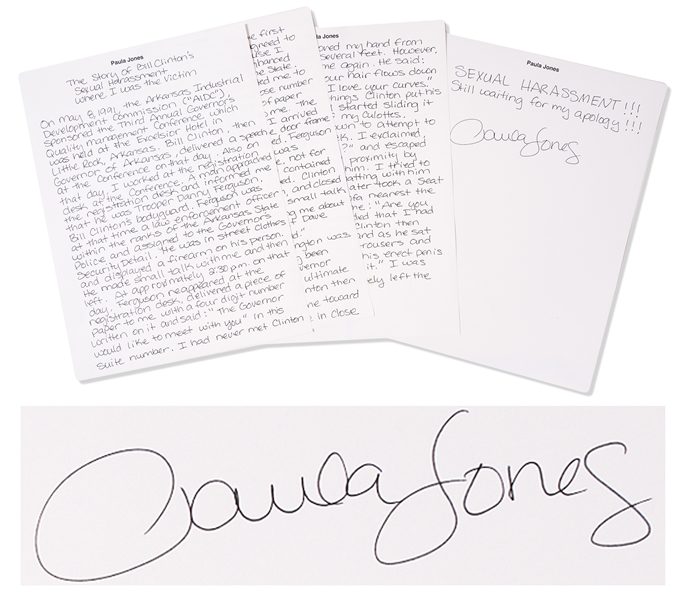 Paula Jones
The Story of Bill Clinton's
Sexual Harassment
where I was the Victim
On May 8, 1991, the Arkansas Industrial
Development Commission ("AIDC"),
sponsored the Third Annual Governors
Quality management Conference which
was held at the Excelsior Hotel in
Little Rock, Arkansas. Bill Clinton, then
Governor of Arkansas, delivered a speech
at the Conference on that day. Also on
that day, I worked at the registration
desk at the Conference. A man approached
the registration desk and informed me
that he was Trooper Danny Ferguson,
Bill Clinton's bodyguard. Ferguson was
at that time a law enforcement officer
within the ranks of the Arkansas State
Police and assigned to the Governors
Security Detail. He was in street clothes
and displayed a firearm on his person.
He made small talk with me and then
left. At approximately 2:30 pm. on that
day, Ferguson reappeared at the
registration desk, delivered a piece of
paper to me with a four digit number
written on it and said: "The Governor
would like to meet with you" in this
suite number. I had never met Clinton
first
agreed to
use I
enhanced
the State.
ted me to
se number
of paper
me. The
I arrived
e door frame
was
ed. Ferguson
e, not for
contained
ed. Clinton
, and closed
small talk
ng me about
Dave
d."
ngton was
been
vernor
ultimate
nton then
me toward
in close
oned my hand from
several feet. However,
me again. He said:
our hair flows down
I love your curves."
hings Clinton put his
started sliding it
my culottes.
down to attempt to
k. I exclaimed
?" and escaped
proximity by
him. I tried to
hatting with him
ater took a seat
fa nearest the
me: "Are you
ded that I had
Clinton then
nd as he sat
rousers and
his erect penis
it." I was
ely left the
Paula Jones
SEXUAL HARASSMENT!!!
Still waiting for my apology!!!
Paula Jones
Paula Jones